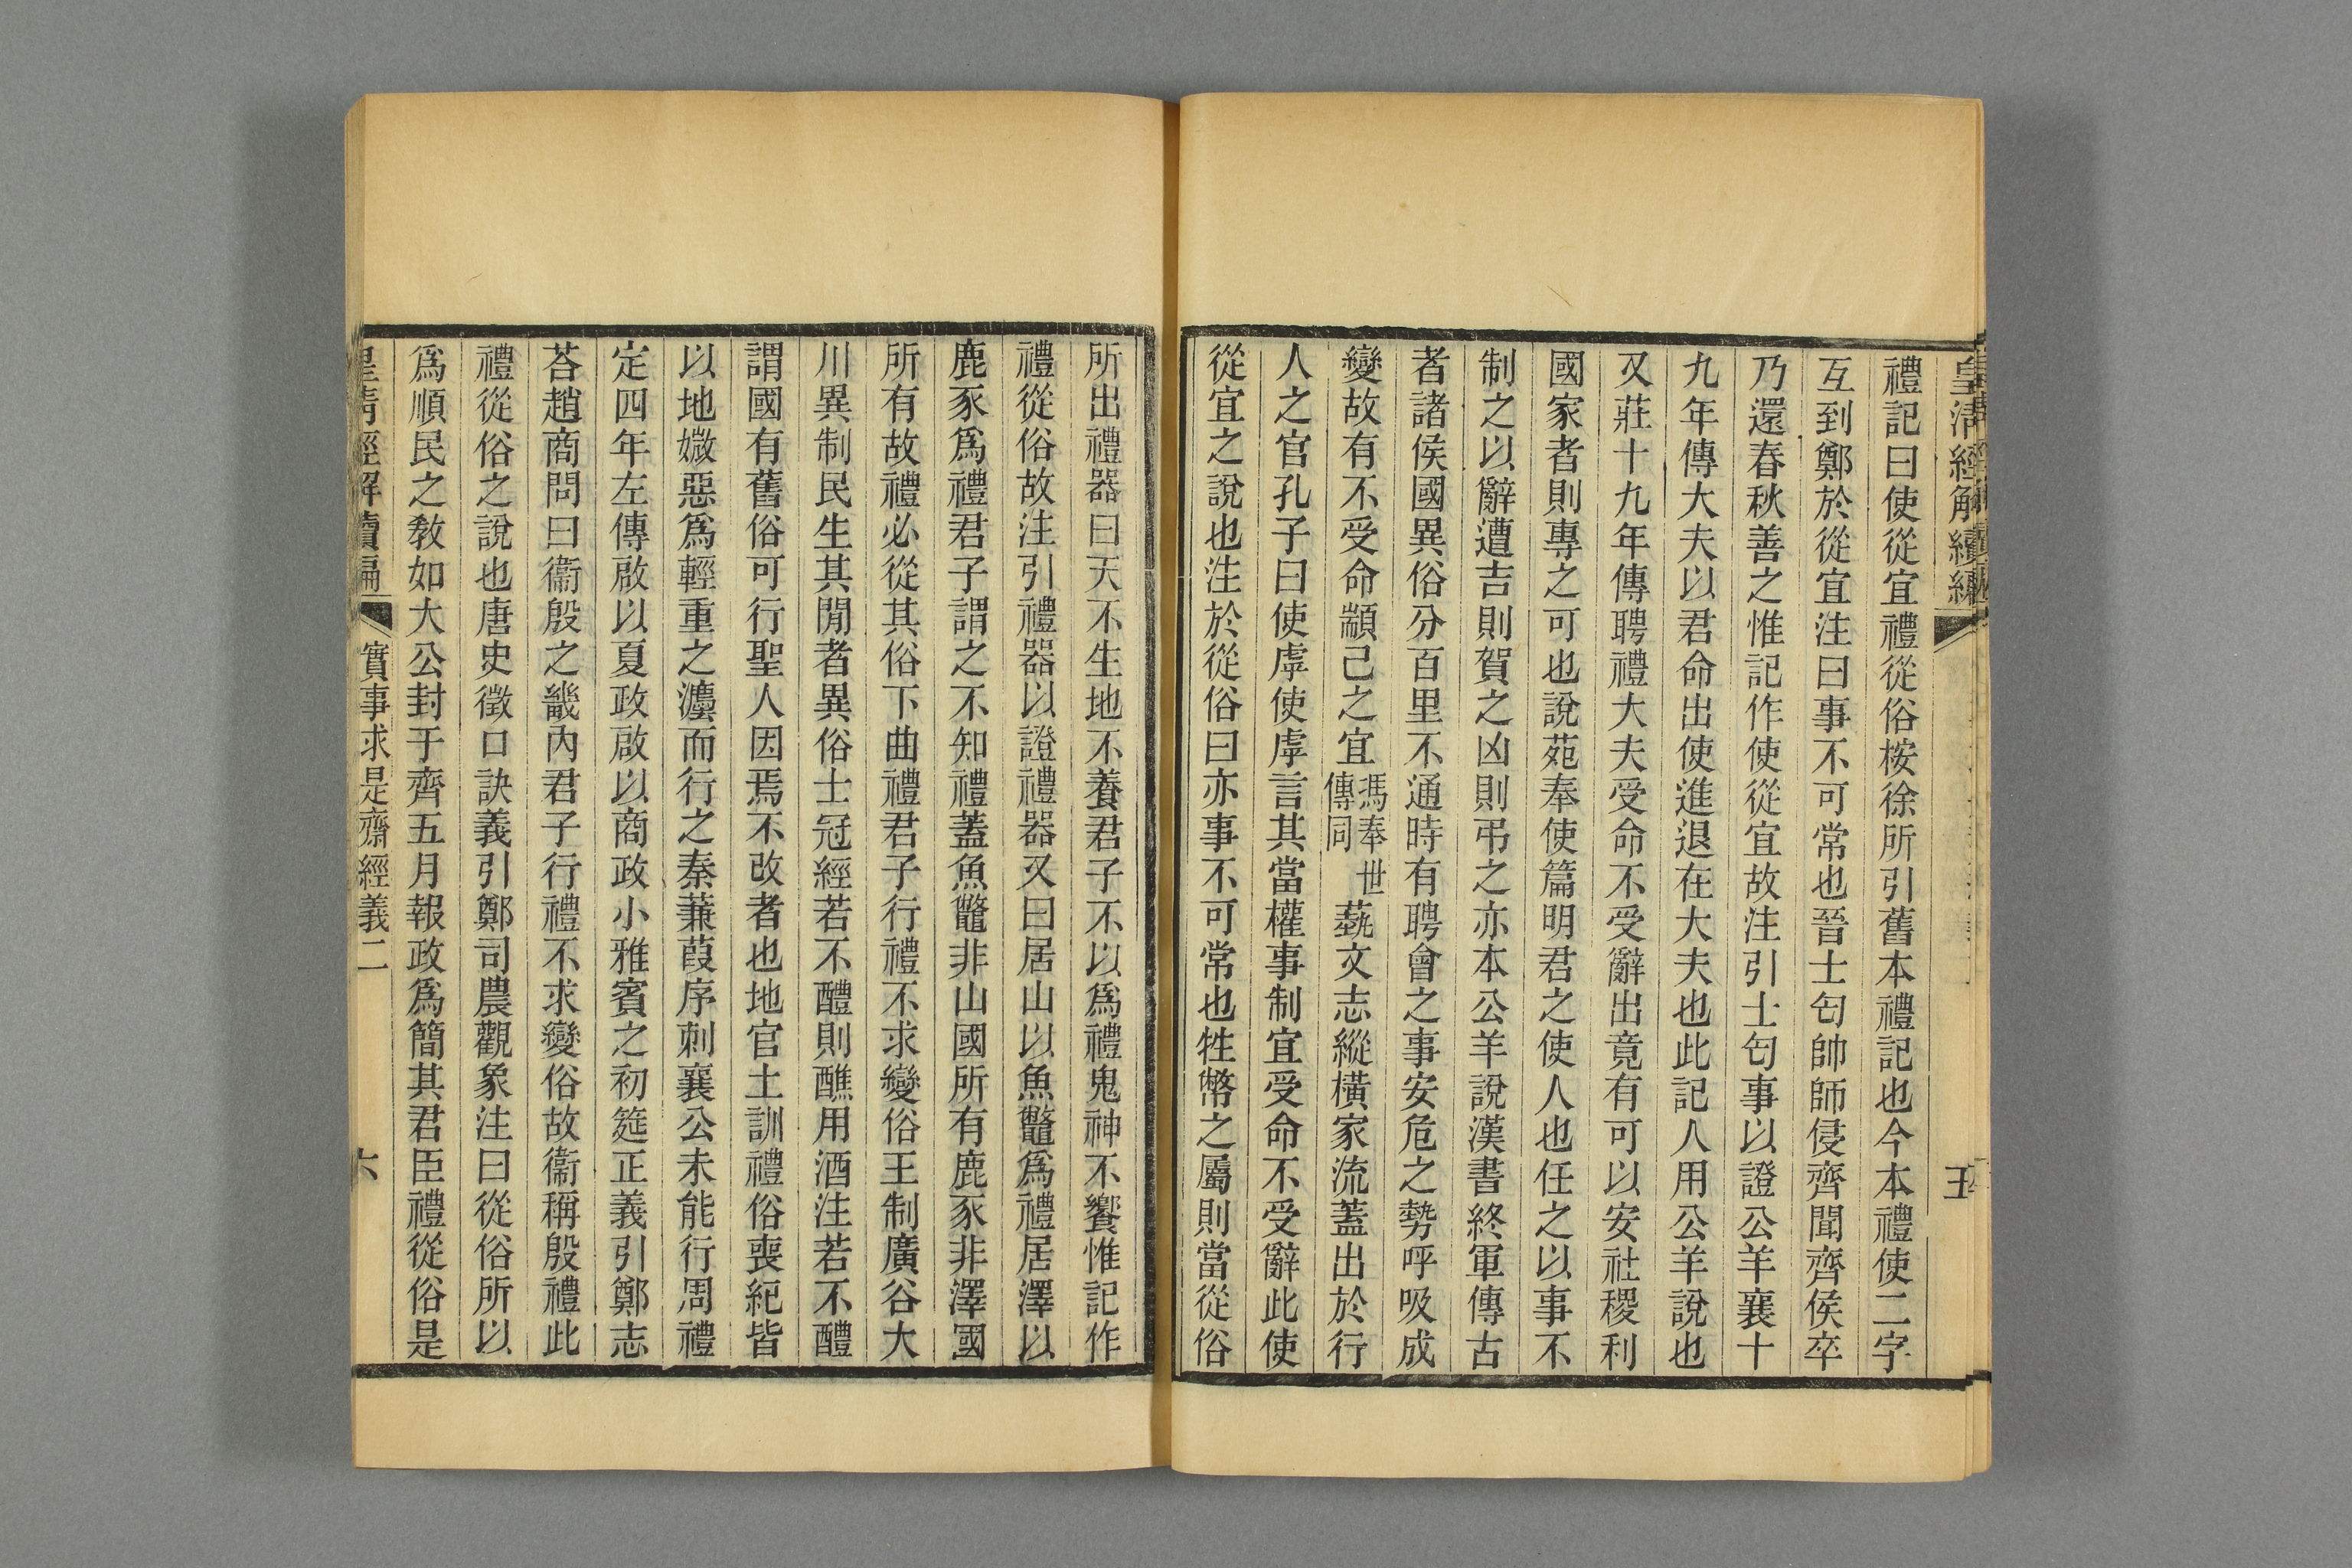 皇清經解續編
五
禮記曰使從宜禮從俗桉徐所引舊本禮記也今本禮使二字
互到鄭於從宜注曰事不可常也晉士匄帥師侵齊聞齊侯卒
乃還春秋善之惟記作使從宜故注引士匄事以證公羊襄十
九年傳大夫以君命出使進退在大夫也此記人用公羊說也
又莊十九年傳聘禮大夫受命不受辭出竟有可以安社稷利
國家者則專之可也說苑奉使篇明君之使人也任之以事不
制之以辭遭吉則賀之凶則弔之亦本公羊說漢書終軍傳古
者諸侯國異俗分百里不通時有聘會之事安危之勢呼吸成
變故有不受命顓己之宜馮奉世傳同蓺文志縱橫家流蓋出於行
人之官孔子曰使虖使虖言其當權事制宜受命不受辭此使
從宜之說也注於從俗曰亦事不可常也牲幣之屬則當從俗
所出禮器曰天不生地不養君子不以爲禮鬼神不饗惟記作
禮從俗故注引禮器以證禮器又曰居山以魚鼈爲禮居澤以
鹿豕爲禮君子謂之不知禮蓋魚鼈非山國所有鹿豕非澤國
所有故禮必從其俗下曲禮君子行禮不求變俗王制廣谷大
川異制民生其閒者異俗士冠經若不醴則醮用酒注若不醴
謂國有舊俗可行聖人因焉不改者也地官土訓禮俗喪紀皆
以地媺惡爲輕重之灋而行之秦蒹葭序刺襄公未能行周禮
定四年左傳啟以夏政啟以商政小雅賓之初筵正義引鄭志
荅趙商問曰衞殷之畿內君子行禮不求變俗故衞稱殷禮此
禮從俗之說也唐史徵口訣義引鄭司農觀象注曰從俗所以
爲順民之敎如大公封于齊五月報政爲簡其君臣禮從俗是
皇清經解續編
實事求是齋經義二
六